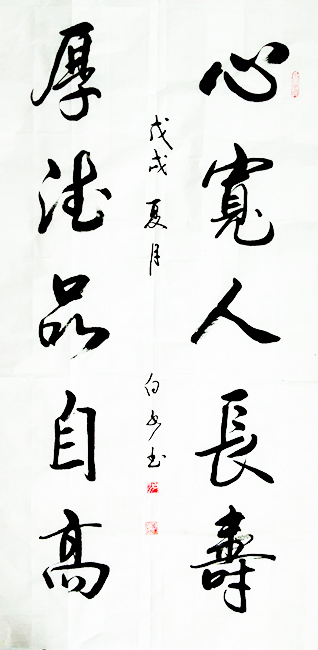 心寬人長壽
厚德品自高
戊戌夏月